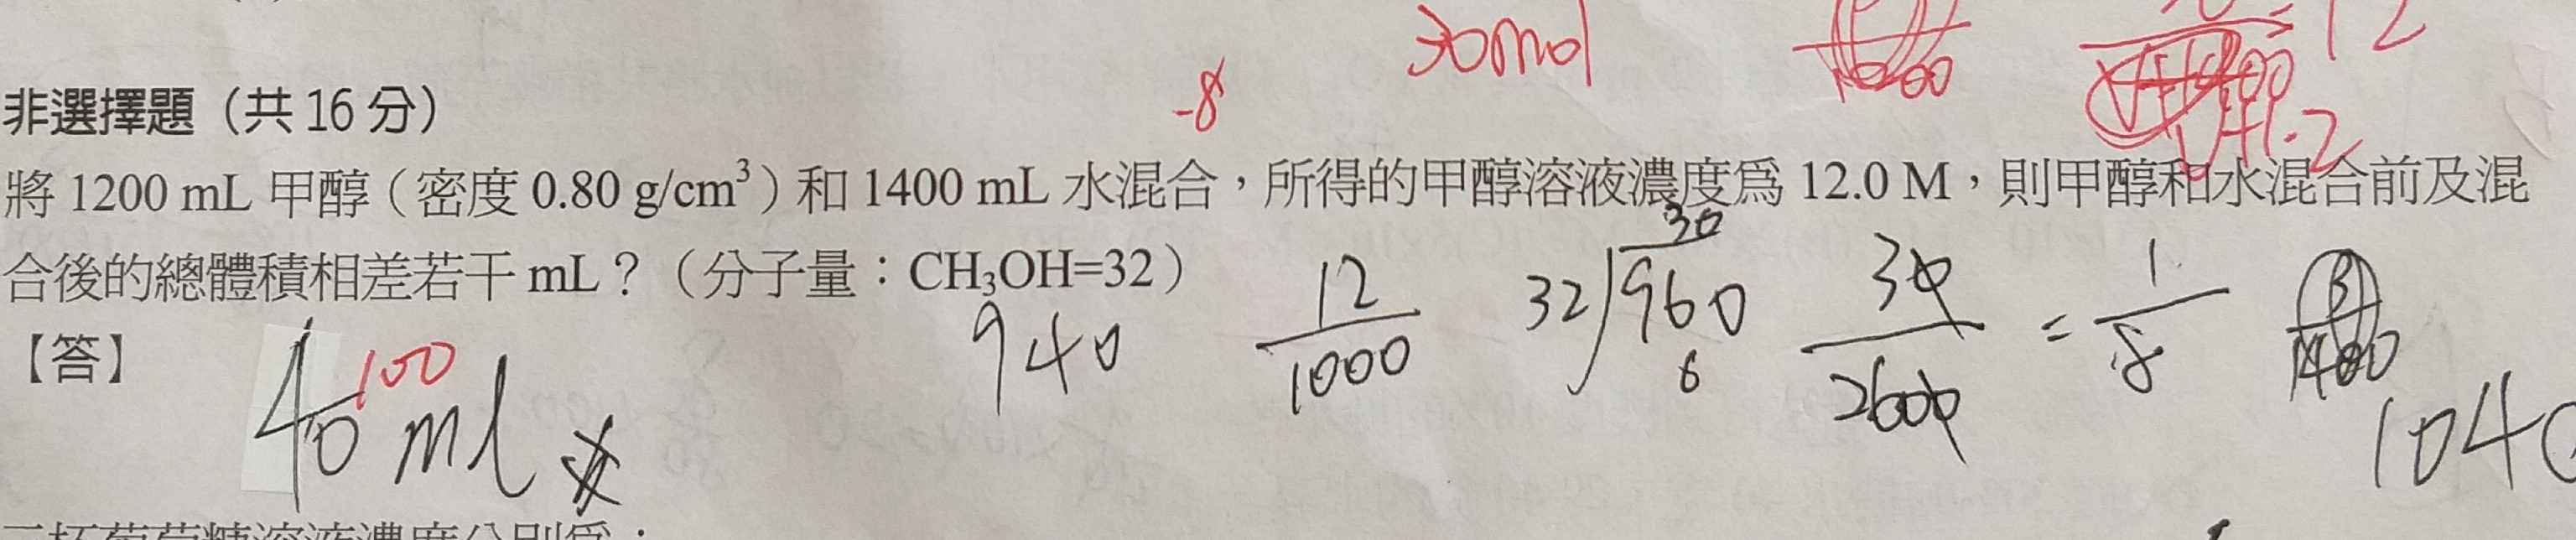 30mol
12
1000
1+1.2
-8
非選擇題（共 16 分）
將 1200 mL 甲醇（密度 0.80 g/cm³）和 1400 mL 水混合，所得的甲醇溶液濃度為 12.0 M，則甲醇和水混合前及混
合後的總體積相差若干 mL？（分子量：CH₃OH=32）
【答】
40 ml
100
940
12
1000
30
32 960
6
30
2600
=
1
1400
1040